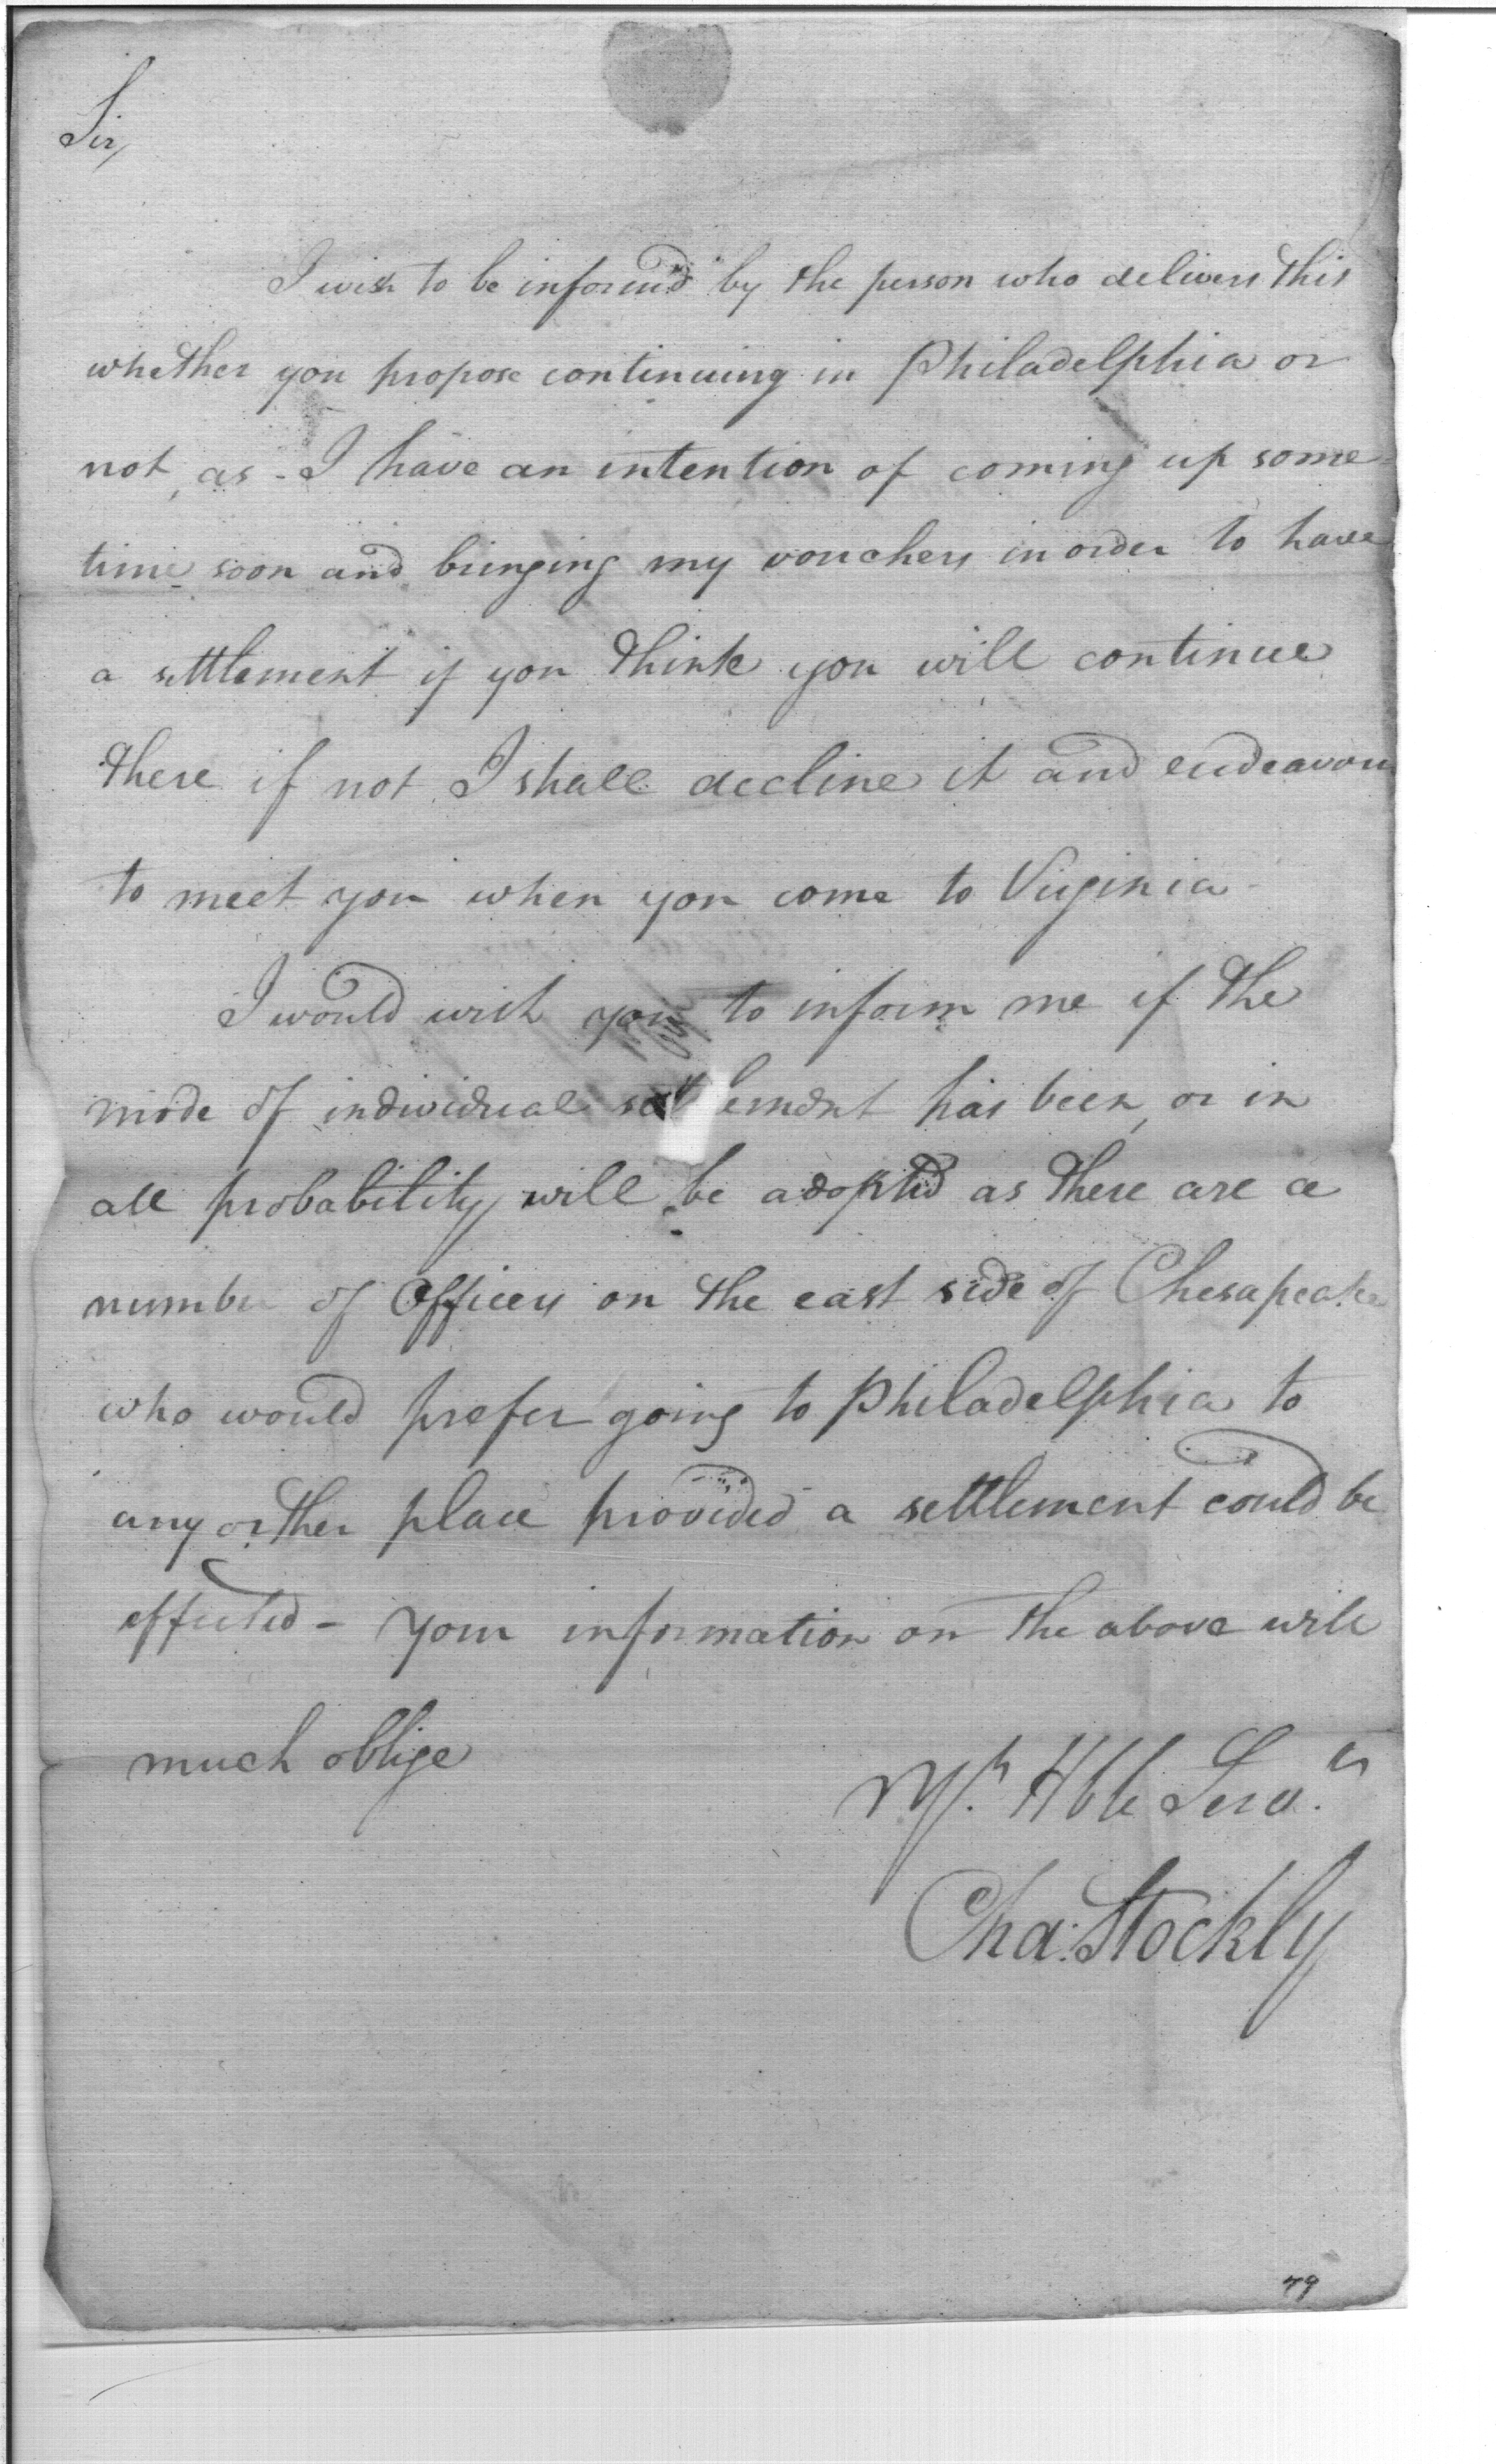 Sir,
I wish to be inform'd by the person who delivers this
whether you propose continuing in Philadelphia or
not, as - I have an intention of coming up some-
time soon and bringing my vouchers in order to have
a settlement if you think you will continue
there if not I shall decline it and endeavour
to meet you when you come to Virginia -
I would wish you to inform me if the
mode of individual settlement has been, or in
all probability will be adopted as there are a
number of Officers on the east side of Chesapeake
who would prefer going to Philadelphia to
any other place provided a settlement could be
effected - Your information on the above will
much oblige
Yr. Hble Serv.
Cha: Stockly
79